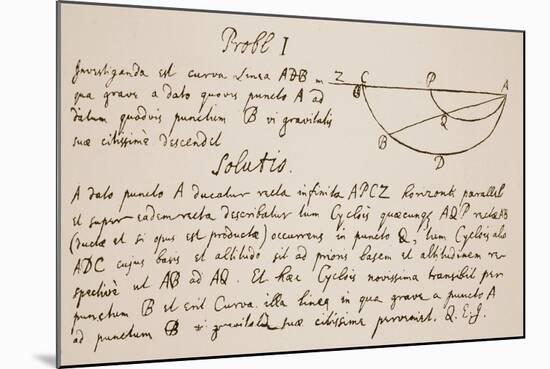 Probl I
Investiganda est curva Linea ADB in
qua grave a dato quovis puncto A ad
datum quodvis punctum B vi gravitatis
suæ citissimè descendet
Z C P A
Q
B
D
Solutio.
A dato puncto A ducatur recta infinita APCZ horizonti parallela
et super eadem recta describatur tum Cyclois quæcunq AQP rectæ AB
(ductæ et si opus est productæ) occurrens in puncto Q, tum Cyclois alia
ADC cujus basis et altitudo sit ad prioris basem et altitudinem re-
spectivè ut AB ad AQ. Et hæc Cyclois novissima transibit per
punctum B et erit Curva illa linea in qua grave a puncto A
ad punctum B vi gravitatis suæ citissime perveniet. Q.E.I.